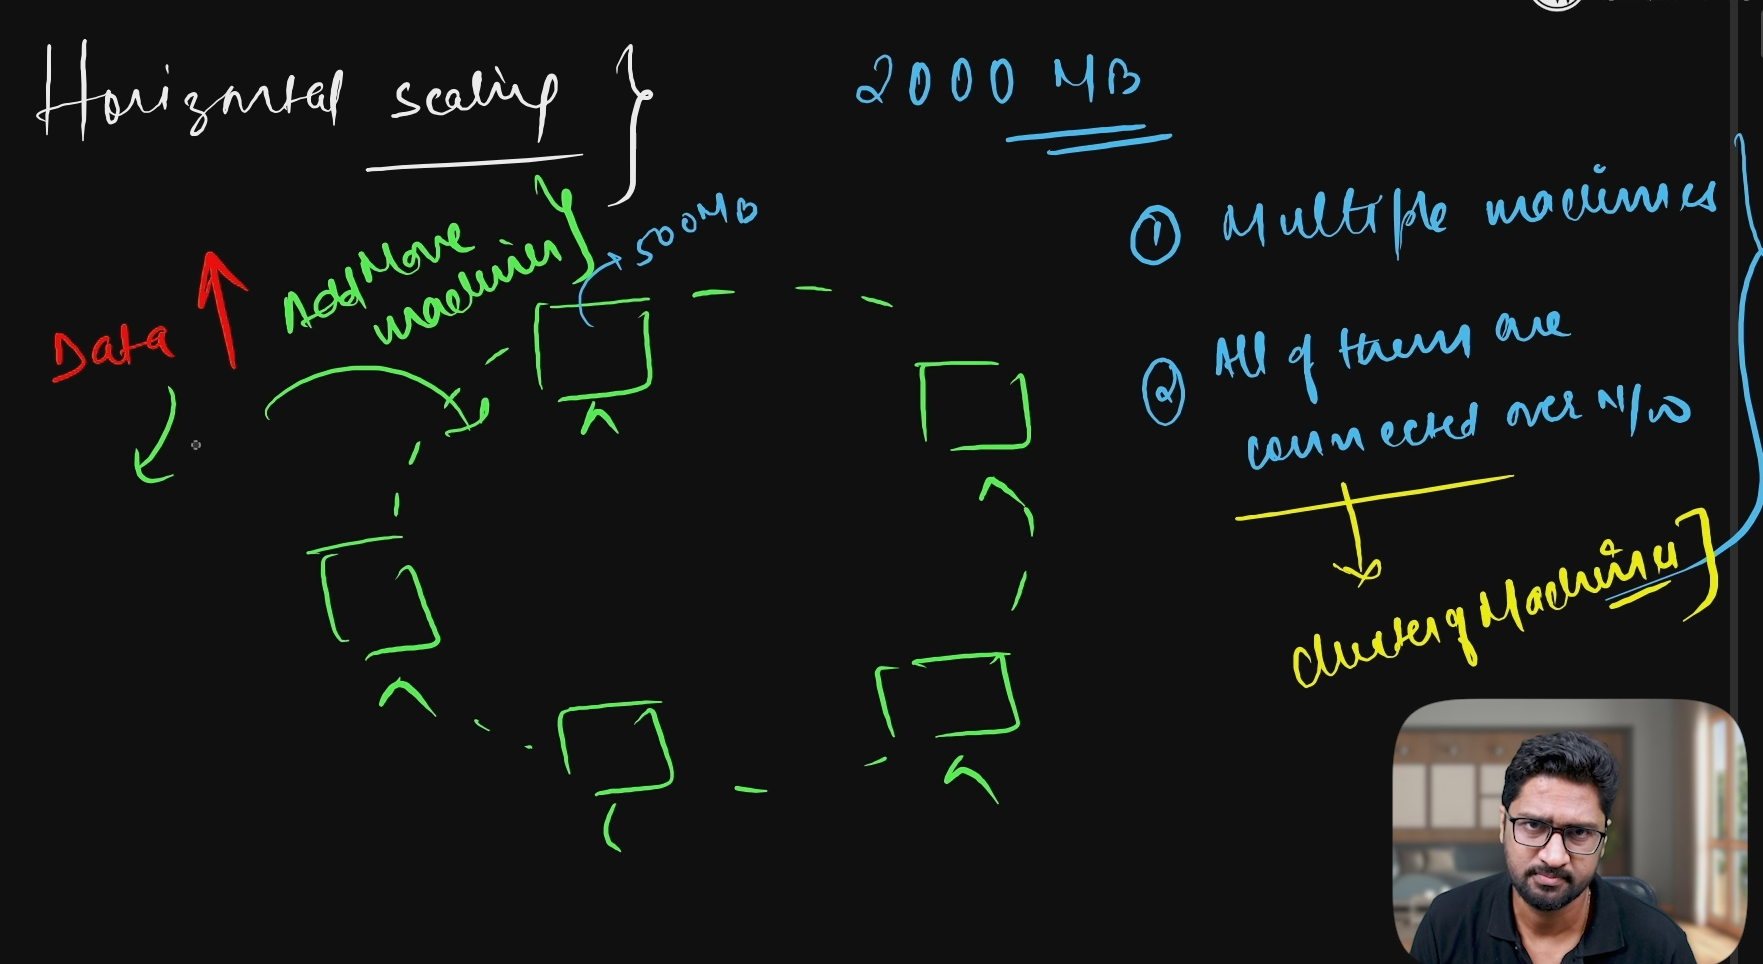 Horizontal scaling
2000 MB
Add More
machines
500MB
Data
① Multiple machines
② All of them are
connected over N/W
cluster of Machines